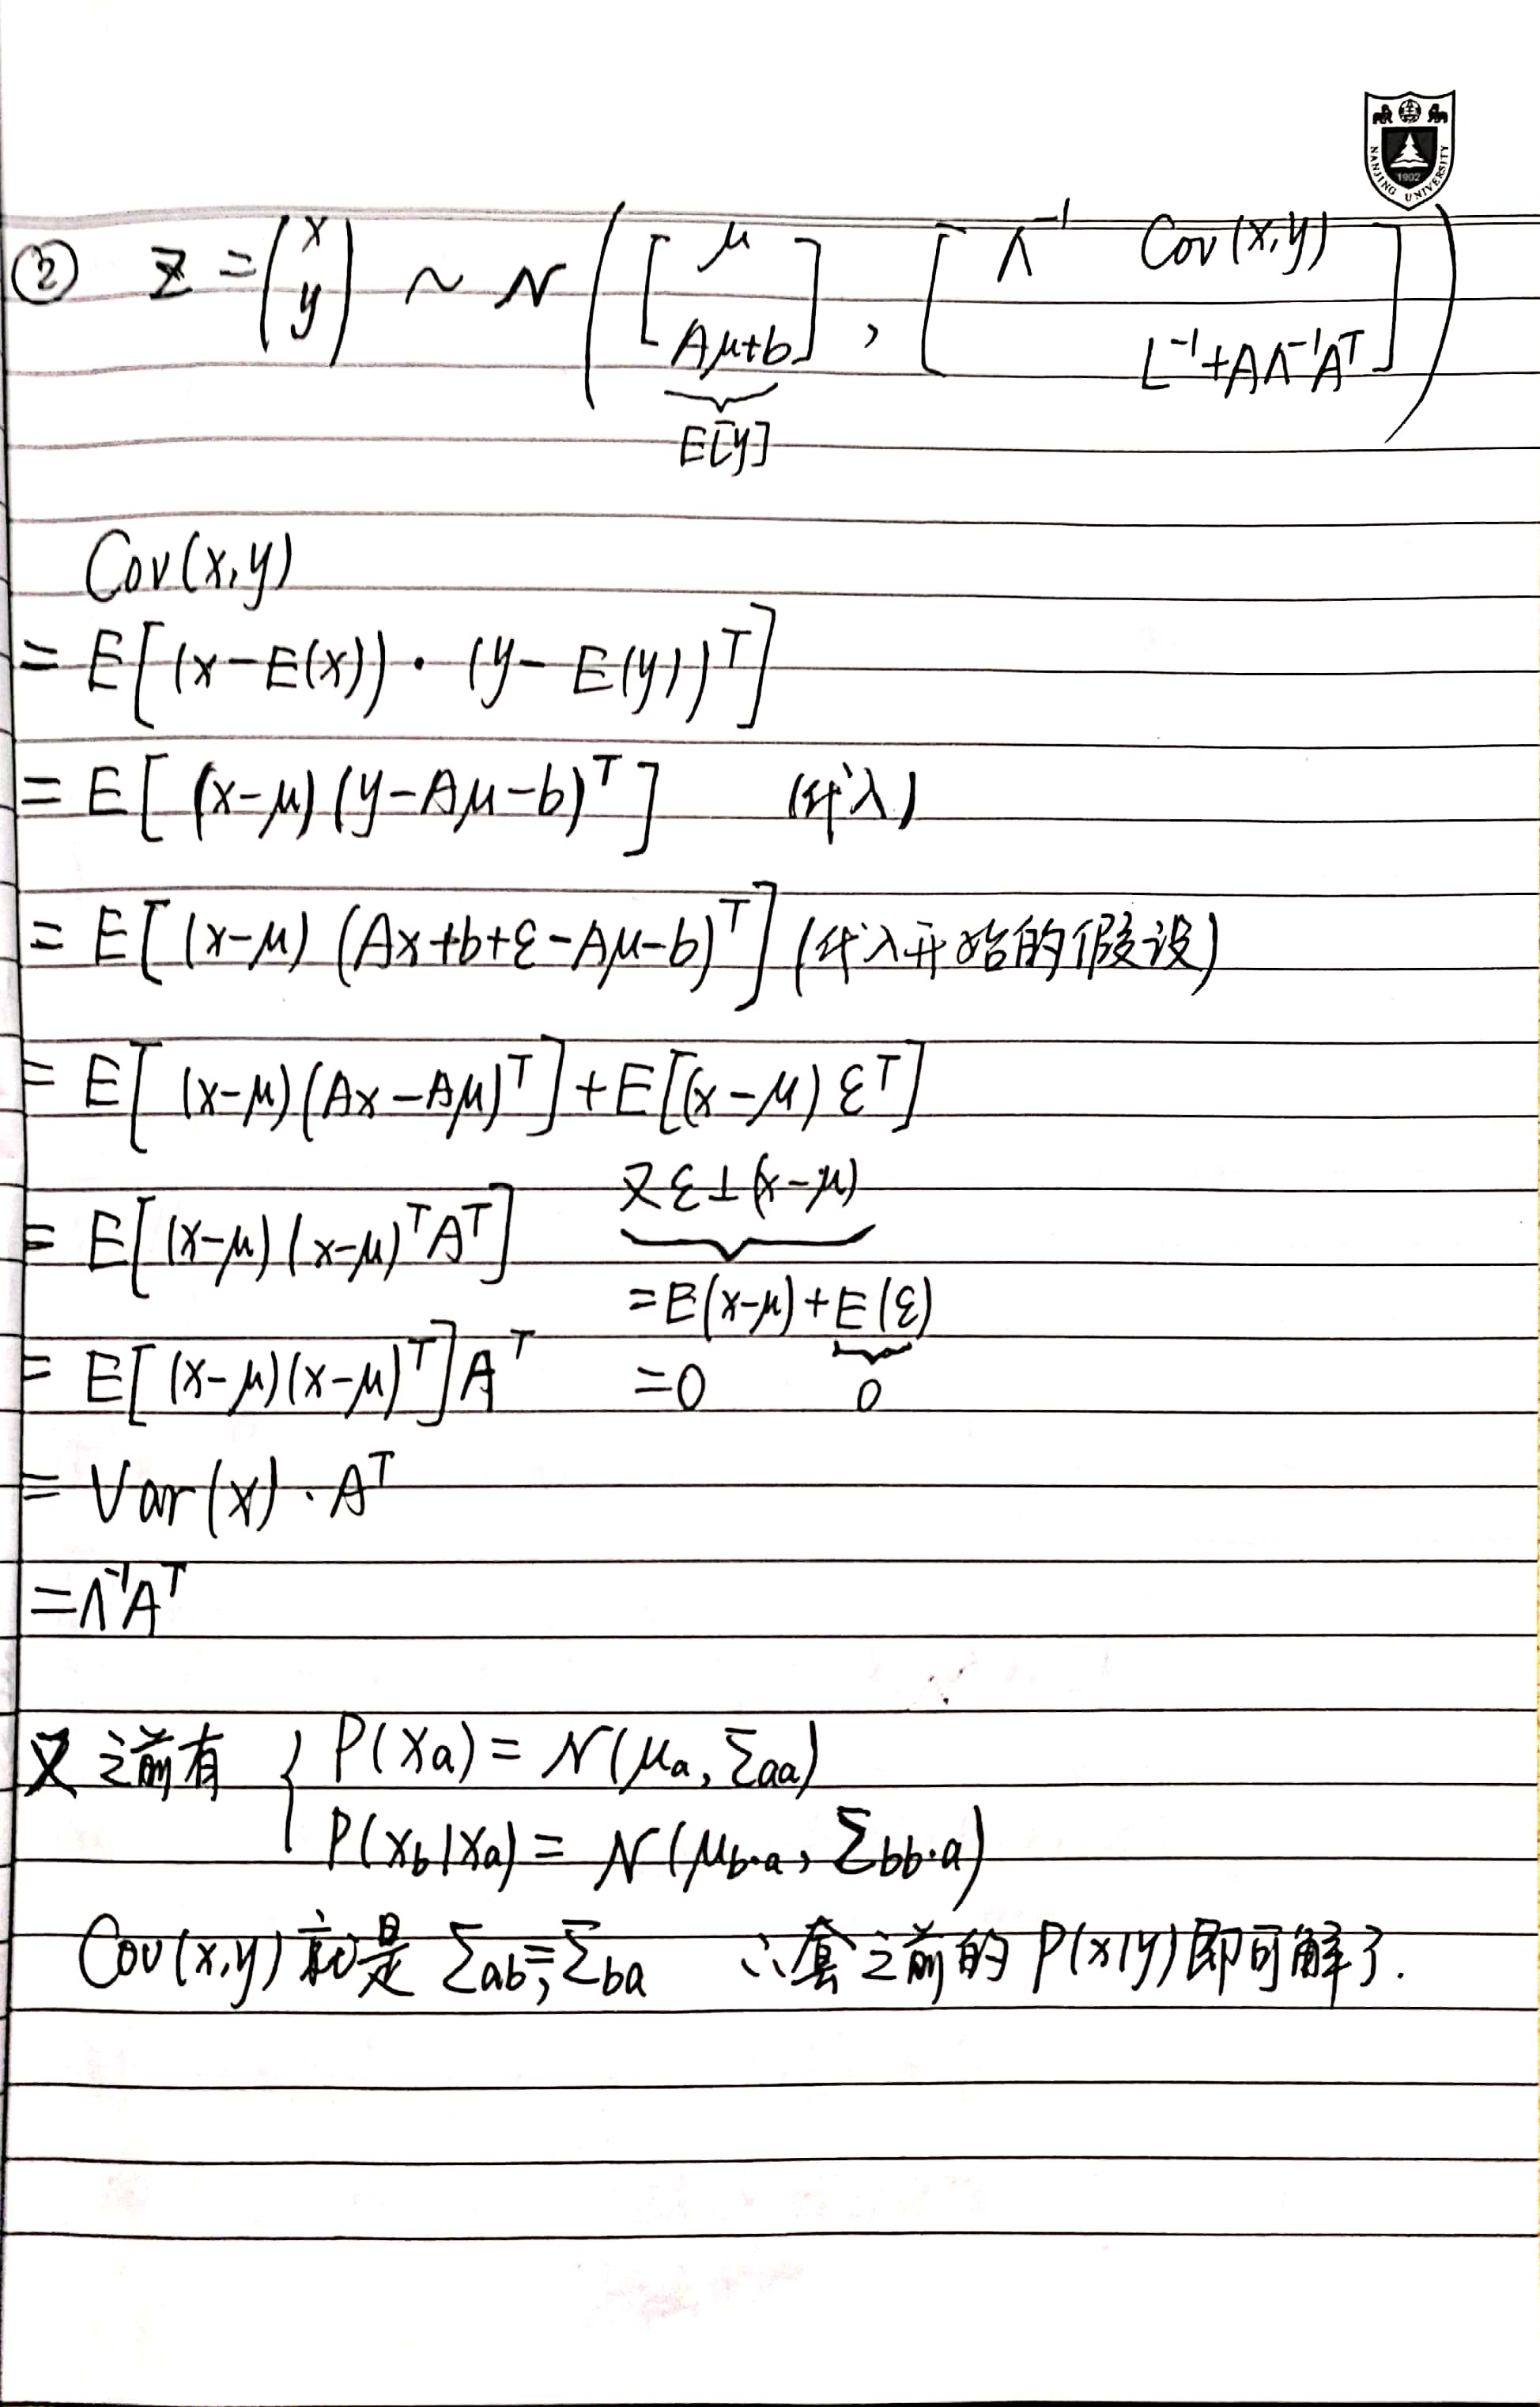 NANJING UNIVERSITY
1902
② Z = (x y) ~ N ( [ μ Aμ+b ] , [ Λ⁻¹ Cov(x,y) L⁻¹+AΛ⁻¹Aᵀ ] )
E[y]
Cov(x,y)
= E[(x-E(x))·(y-E(y))ᵀ]
= E[(x-μ)(y-Aμ-b)ᵀ] (代入)
= E[(x-μ)(Ax+b+ε-Aμ-b)ᵀ] (代入开始的假设)
= E[(x-μ)(Ax-Aμ)ᵀ]+E[(x-μ)εᵀ]
= E[(x-μ)(x-μ)ᵀAᵀ] 又ε⊥(x-μ)
=E(x-μ)+E(ε)
= E[(x-μ)(x-μ)ᵀ]Aᵀ =0 0
= Var(x)·Aᵀ
=Λ⁻¹Aᵀ
又之前有 { P(Xa) = N(μa, Σaa)
P(Xb|Xa) = N(μb·a, Σbb·a)
Cov(x,y) 就是 Σab, Σba ∴套之前的P(x|y)即可解了.